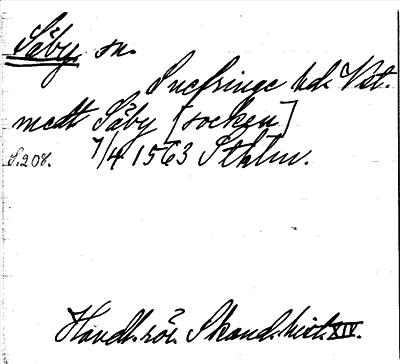 Säby sn.
Snefringe hd. Vst.
medt Såby [socken]
S. 208. 7/4 1563 Sthlm.
Handl. rör. Skand. hist. XIV.